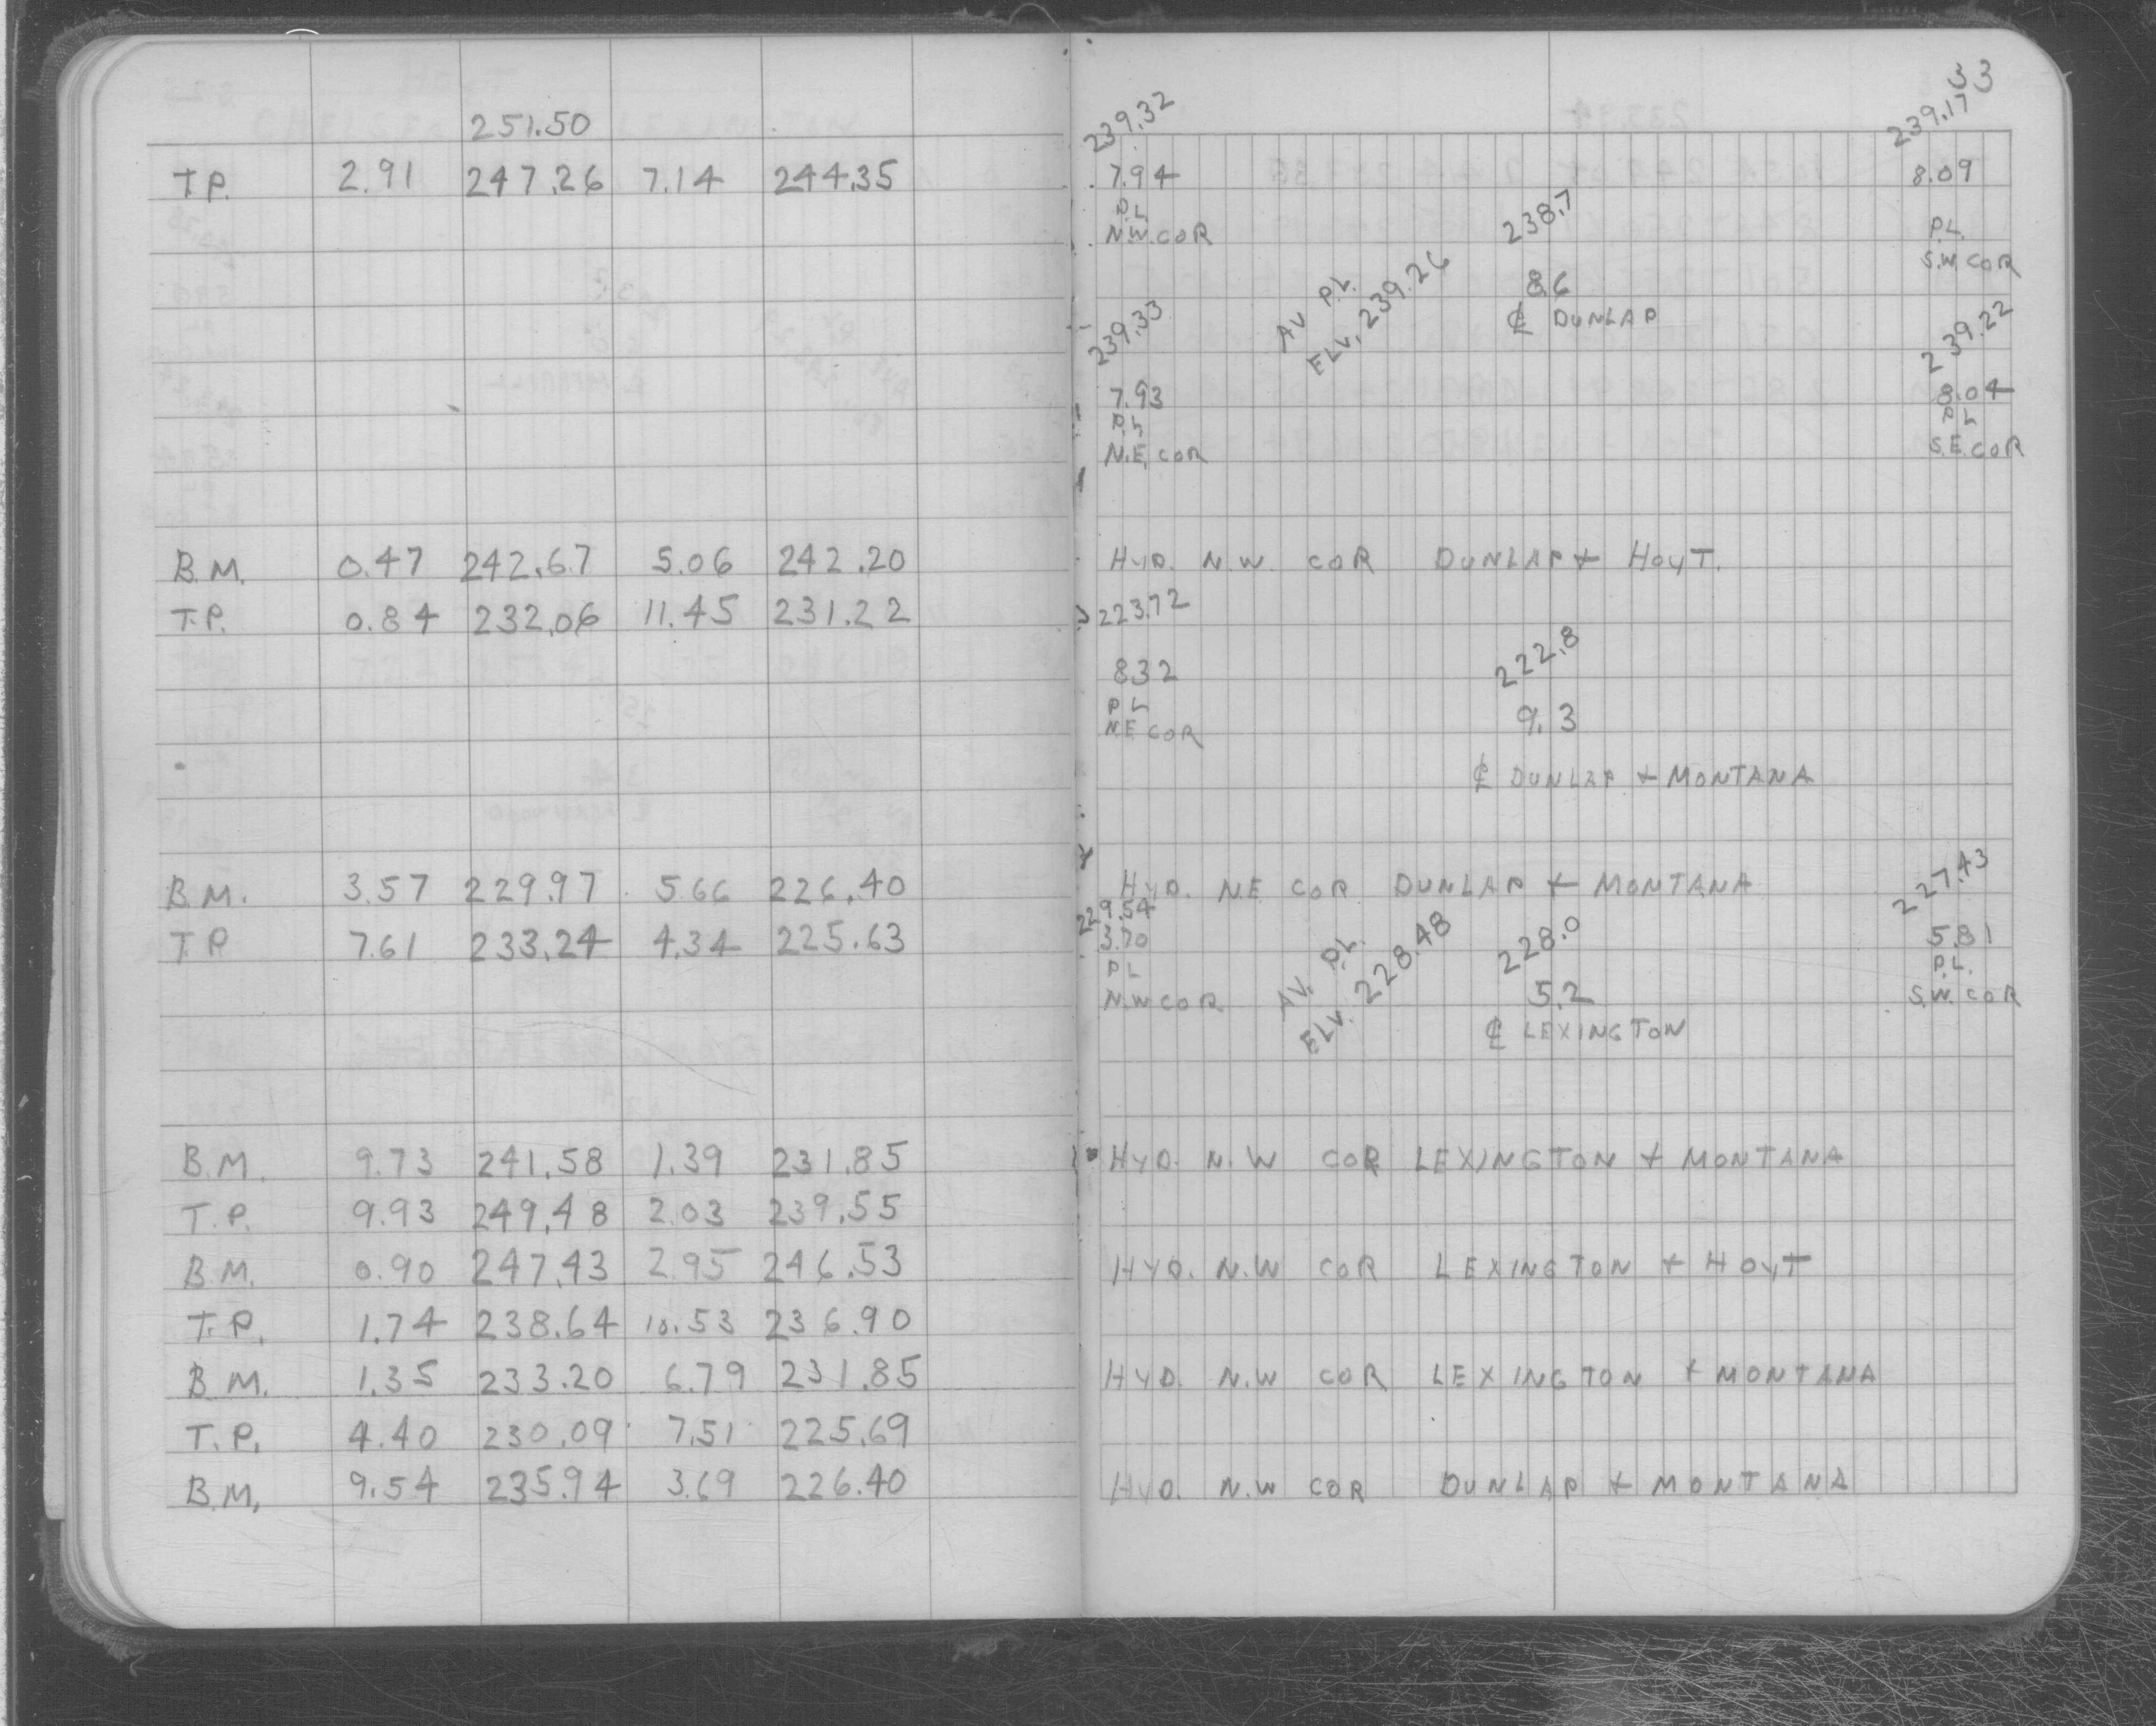 251.50
T.P. 2.91 247.26 7.14 244.35
B.M. 0.47 242.67 5.06 242.20
T.P. 0.84 232.06 11.45 231.22
B.M. 3.57 229.97 5.66 226.40
T.P 7.61 233.24 4.34 225.63
B.M. 9.73 241.58 1.39 231.85
T.P. 9.93 249.48 2.03 239.55
B.M. 0.90 247.43 2.95 246.53
T.P. 1.74 238.64 10.53 236.90
B.M. 1.35 233.20 6.79 231.85
T.P. 4.40 230.09 7.51 225.69
B.M. 9.54 235.94 3.69 226.40
33
239.32 239.17
7.94 8.09
P.L. 238.7 P.L.
N.W. COR S.W COR
8.6
AV P.L. ₵ DUNLAP
ELV. 239.26
239.33 239.22
7.93 8.04
P.L. P.L
N.E. COR S.E. COR
HYD. N.W. COR DUNLAP + HOYT.
223.72
832 222.8
P L 9.3
N.E COR
₵ DUNLAP + MONTANA
HYD. N.E COR DUNLAP + MONTANA
229.54 227.43
3.70 228.0 5.81
P L AV. P.L. P.L.
N.W COR ELV. 228.48 5.2 S.W. COR
₵ LEXINGTON
HYD. N.W COR LEXINGTON + MONTANA
HYD. N.W COR LEXINGTON + HOYT
HYD. N.W COR LEXINGTON + MONTANA
HYD. N.W COR DUNLAP + MONTANA